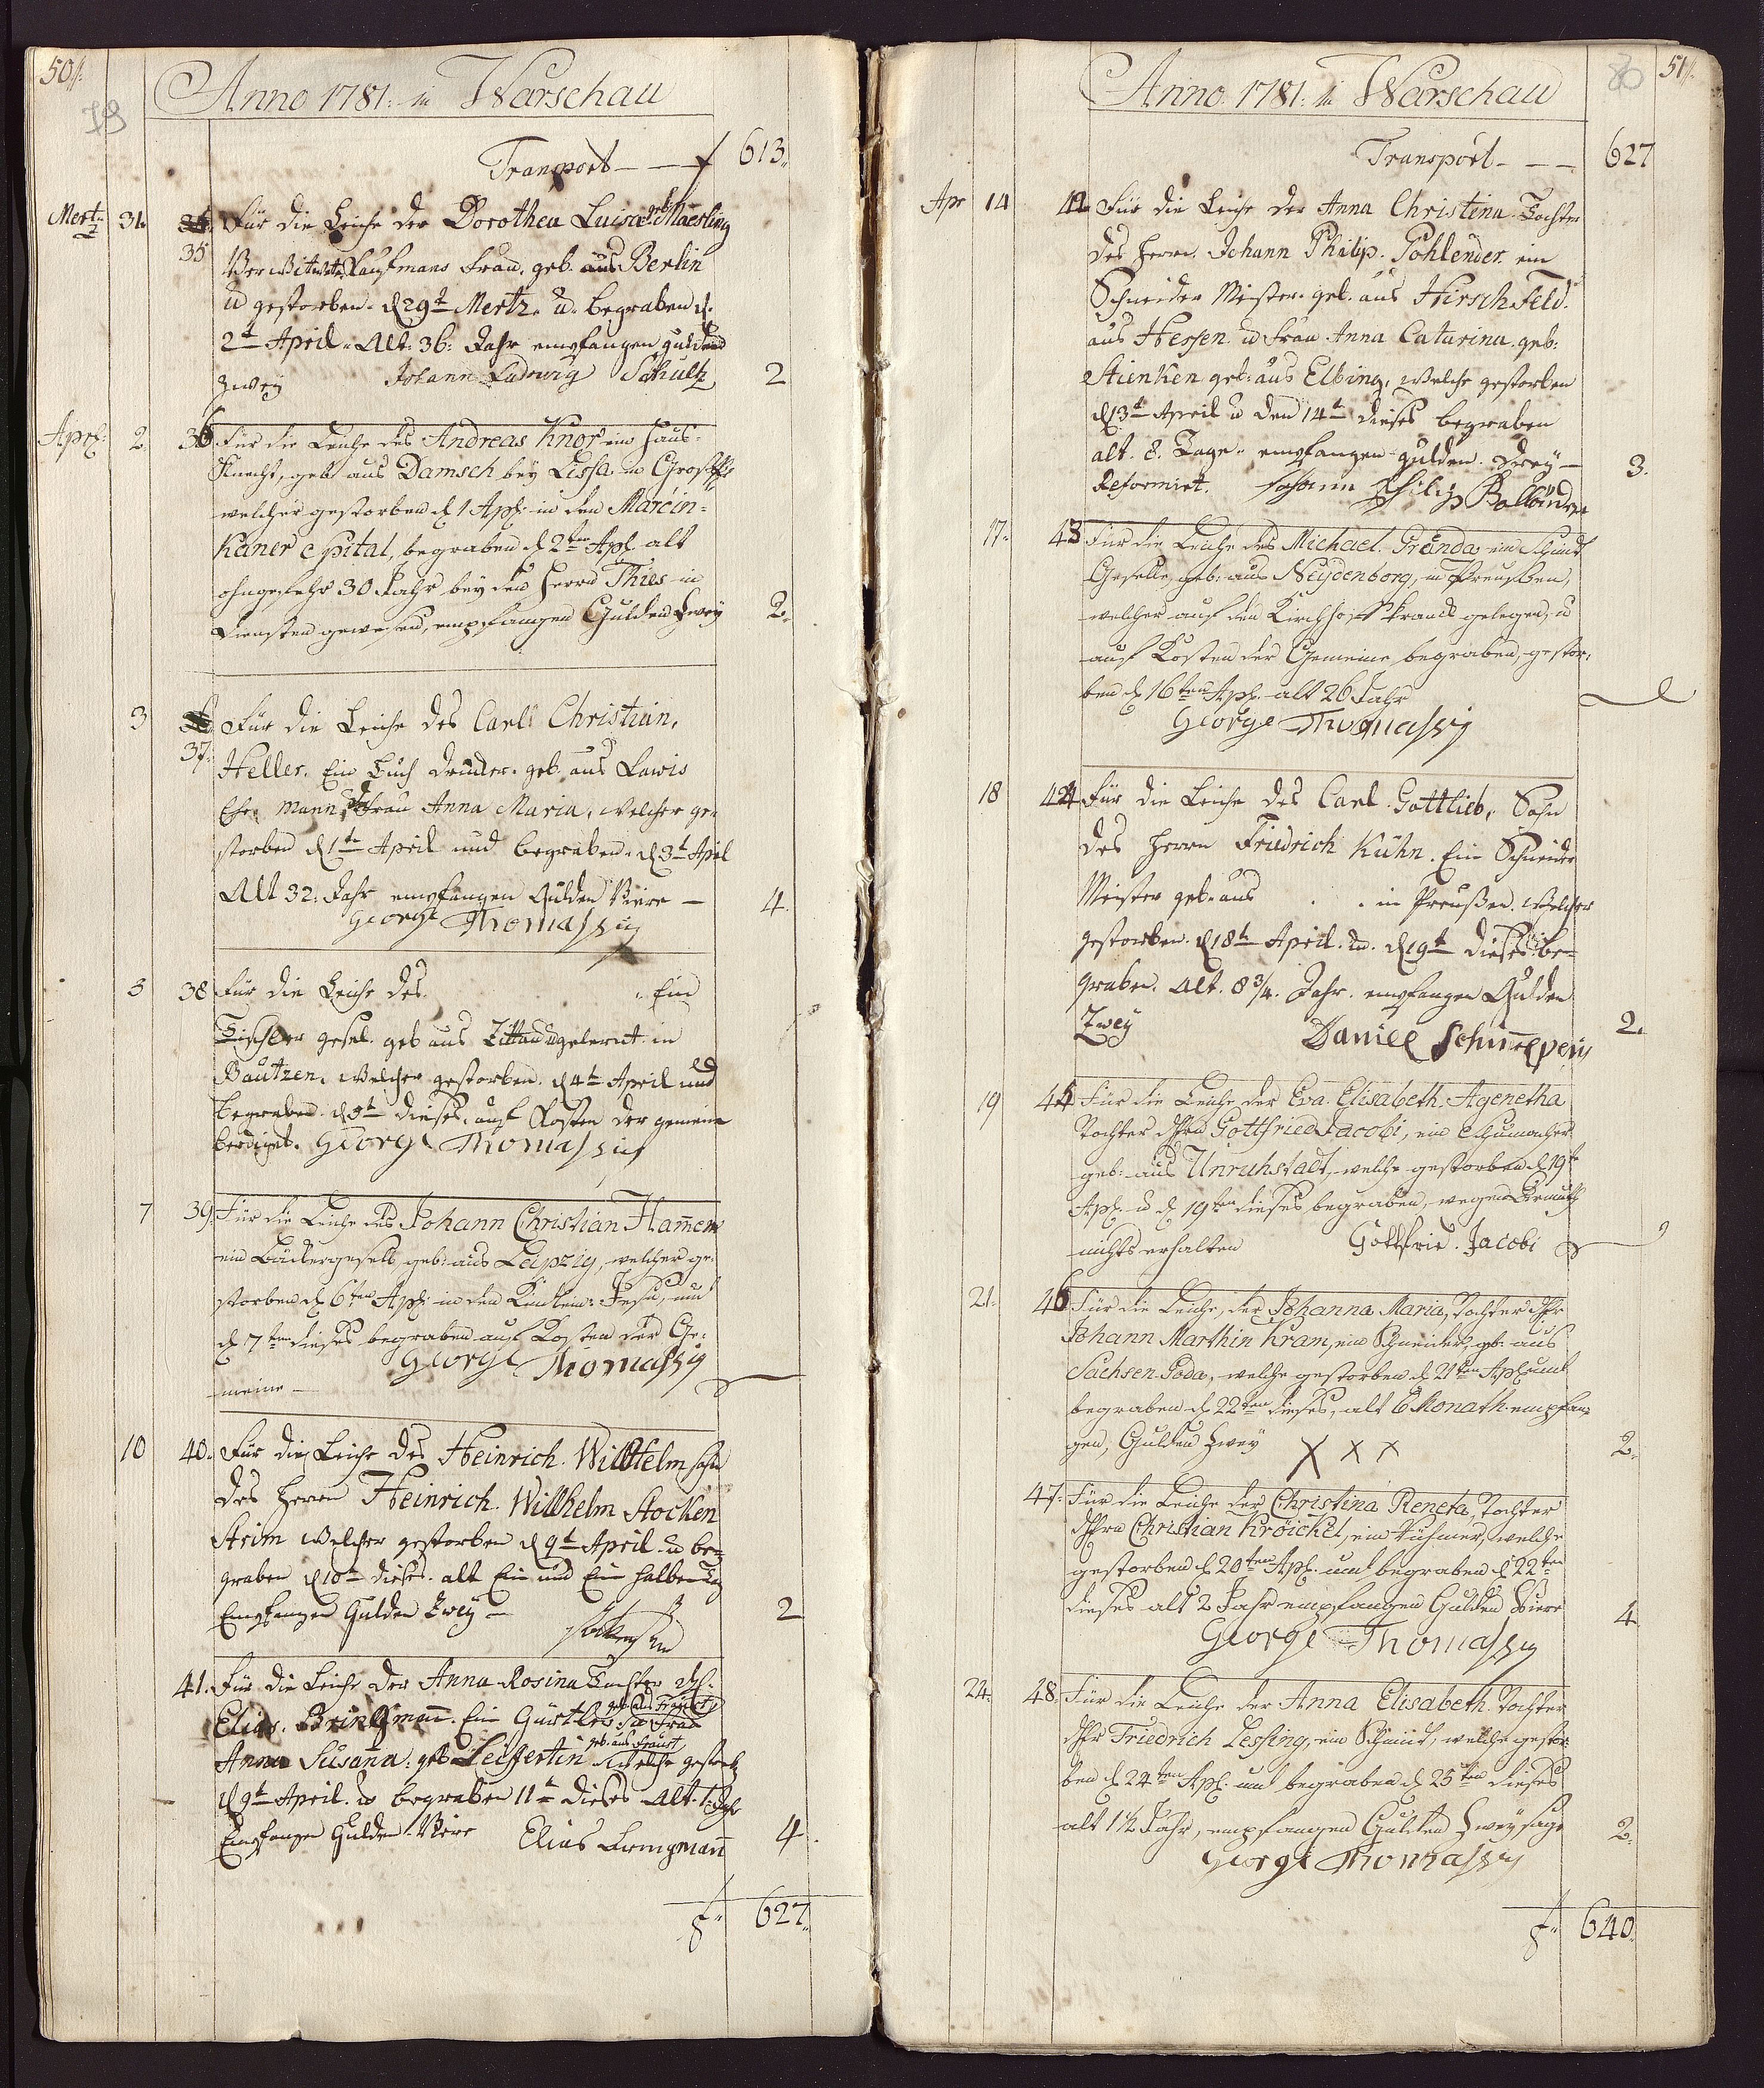 50//.
79
Anno 1781: in Warschau
Transport — — f 613„
Mertz 31. 34. Für die Leiche der Dorothea Luisa Maesling
35 Verwitwete Kaufmans Frau. geb. aus Berlin
u gestorben. d 29t Mertz. u. begraben d.
2t April. Alt. 36: Jahr empfangen gulden
zwey Johann Ludewig Schultz 2
Apr. 2. 36 Für die Leiche des Andreas Knor ein Haus-
Knecht, geb. aus Damsch bey Lissa in
welcher gestorben d 1 Apl. in den Marcin-
kaner Spital, begraben d 2ten Apl alt
ohngefehr 30 Jahr bey den Herrn Thies in
Diensten gewesen, empfangen Gulden Zwey 2.
3 37. Für die Leiche des Carl Christian.
Heller. Ein Tuch geb. aus Lawis
Ehe mann Frau Anna Maria. Welcher ge-
storben d 1te April und begraben. d 3t April
Alt 32. Jahr empfangen Gulden Viere — 4.
George Thomassig
5 38 Für die Leiche des „ Ein
Tischler gesel. geb aus Zittau gelernt in
Bautzen. Welcher gestorben. d 4t April und
begraben d 5t dieses. auf Kosten der gemein
berdiget. George Thomassig
7 39. Für die Leiche des Johann Christian
ein Bäckergesell, geb: aus Leipzig, welcher ge-
storben d 6ten Apl: in den Kindlein Jesu, und
d 7ten dieses begraben auf Kosten der Ge-
meine — George Thomassig
10 40. Für die Leiche des Heinrich. Wilhelm sohn
des Herrn Heinrich. Wilhelm Stocken
Strim Welcher gestorben d 9t April. u be-
graben d 10t dieses. alt Ein und Ein halben Tag
Empfangen Gulden Zwey — 2
41. Für die Leiche der Anna Rosina Tochter dh.
Elias. Bringmann. Ein Gürtler. geb aus u Frau
Anna Susanna. geb Leifertin geb: aus Fraust Welche gestorb
d 9t April. u begraben 11t dieses Alt. 1. Jahr
Empfangen Gulden. Viere Elias Bringmann 4.
f„ 627„
80
51//.
Anno 1781: in Warschau
Transport — — 627
Apr 14 42 Für die Leiche der Anna Christina. Tochter
des Herrn. Johann Philip. Pohlender. ein
Schneider Meister. geb. aus Hirschfeld.
aus Hessen u Frau Anna Catarina. geb:
Stienken geb: aus Elbing, Welche gestorben
d 13t April u den 14t dieses begraben
alt. 8. Tage. empfangen gulden. drey — 3.
Reformirt. Johann Philip
17. 43 Für die Leiche des Michael. Granda ein Schmid
Geselle, geb. aus Neydenborg, in Preusßen,
welcher auf den Kirchhoff krank gelegen, u
auf Kosten der Gemeine begraben, gestor-
ben d 16ten Apl. alt 26 Jahr
George Thomassig
18 44 Für die Leiche des Carl. Gottlieb, Sohn
des Herrn Friedrich Kühn. Ein Schneider
Meister geb. aus . . in Preußen. Welcher
gestorben. d 18t April. u. d 19t dieses be-
graben. Alt. 8 3/4. Jahr. empfangen Gulden
Zwey Daniel 2.
19 45 Für die Leiche der Eva. Elisabeth. Agenetha
Tochter dHrn Gottfried Jacobi, ein Schumacher
geb: aus Unruhstadt, welche gestorben d 19t
Apl. u d 19ten dieses begraben, wegen Armuth
nichts erhalten Gottfrid. Jacobi
21. 46 Für die Leiche, der Johanna Maria, Tochter dHr
Johann Marthin Kram, ein Schneider, geb: aus
Sachsen Goda, welche gestorben d 21ten Apl und
begraben d 22ten dieses, alt 6 Monath empfan-
gen, Gulden Zwey X X X 2.
47. Für die Leiche der Christina Reneta, Tochter
dHrn Christian Kröickel, ein welche
gestorben d 20ten Apl. und begraben d 22ten
dieses alt 2 Jahr empfangen Gulden Viere 4
George Thomassig
24. 48. Für die Leiche der Anna Elisabeth. Tochter
dHr Friedrich Lessing, ein Schmid, welche gestor-
ben d 24ten Apl. und begraben d 25ten dieses
alt 1 1/2 Jahr, empfangen Gulden Zwey sage 2.
George Thomassig
f„ 640.